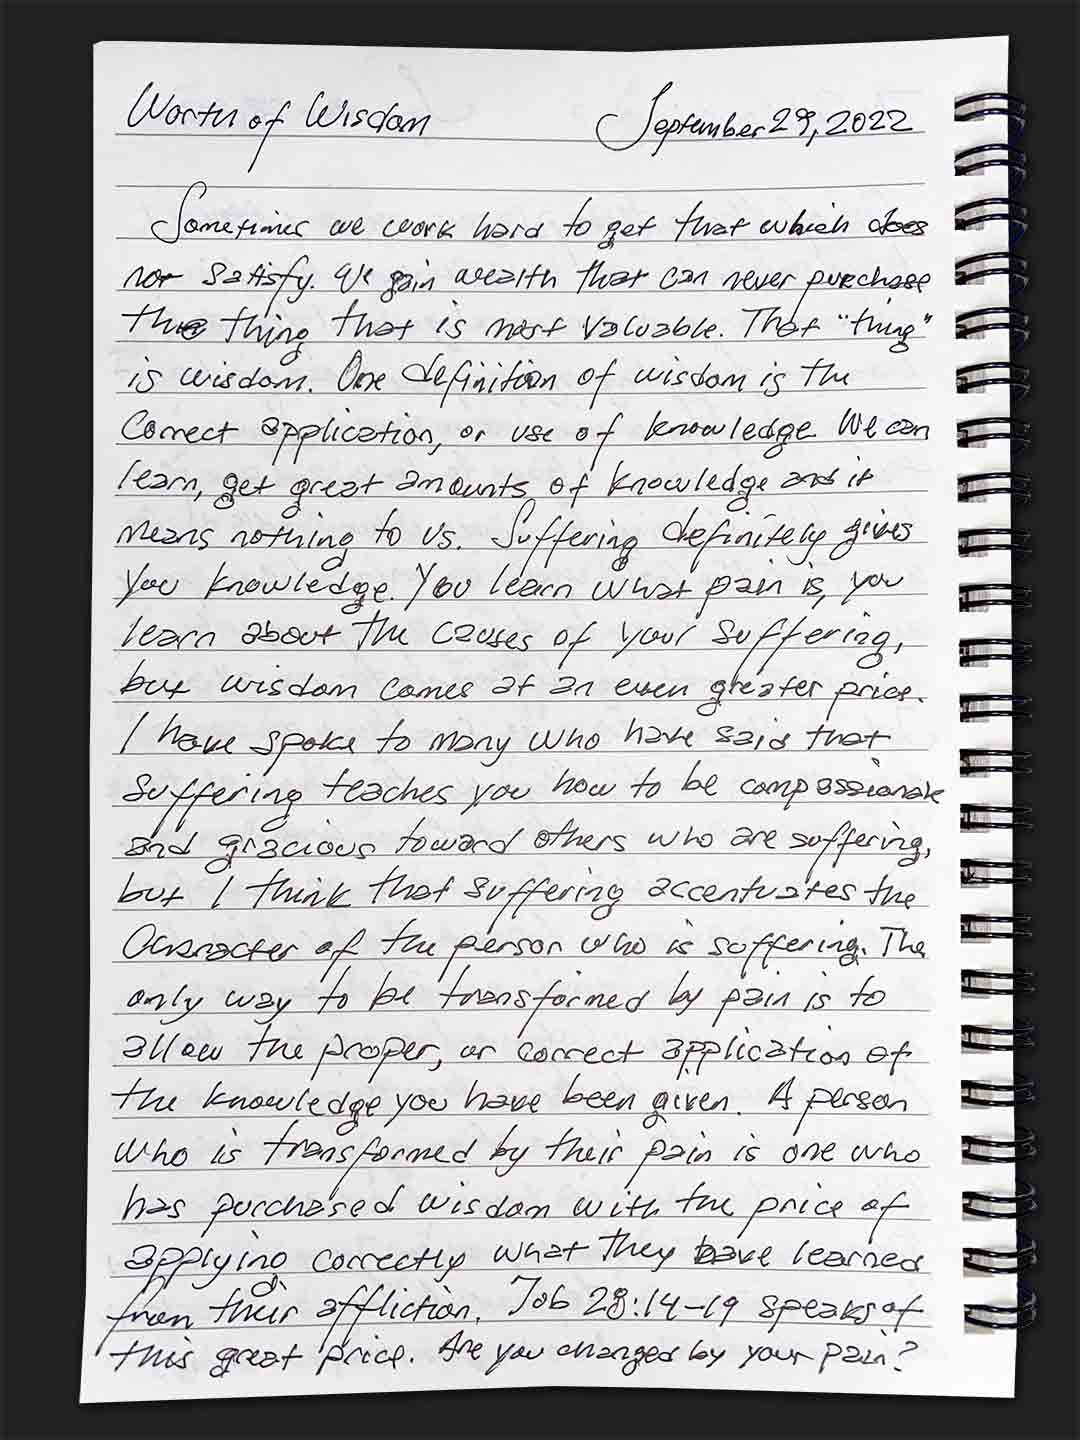 Worth of Wisdom September 29, 2022
Sometimes we work hard to get that which does
not satisfy. We gain wealth that can never purchase
the thing that is most valuable. That "thing"
is wisdom. One definition of wisdom is the
correct application, or use of knowledge. We can
learn, get great amounts of knowledge and it
means nothing to us. Suffering definitely gives
you knowledge. You learn what pain is, you
learn about the causes of your suffering,
but wisdom comes at an even greater price.
I have spoke to many who have said that
suffering teaches you how to be compassionate
and gracious toward others who are suffering,
but I think that suffering accentuates the
Character of the person who is suffering. The
only way to be transformed by pain is to
allow the proper, or correct application of
the knowledge you have been given. A person
who is transformed by their pain is one who
has purchased wisdom with the price of
applying correctly what they have learned
from their affliction. Job 28:14-19 speaks of
this great price. Are you changed by your pain?